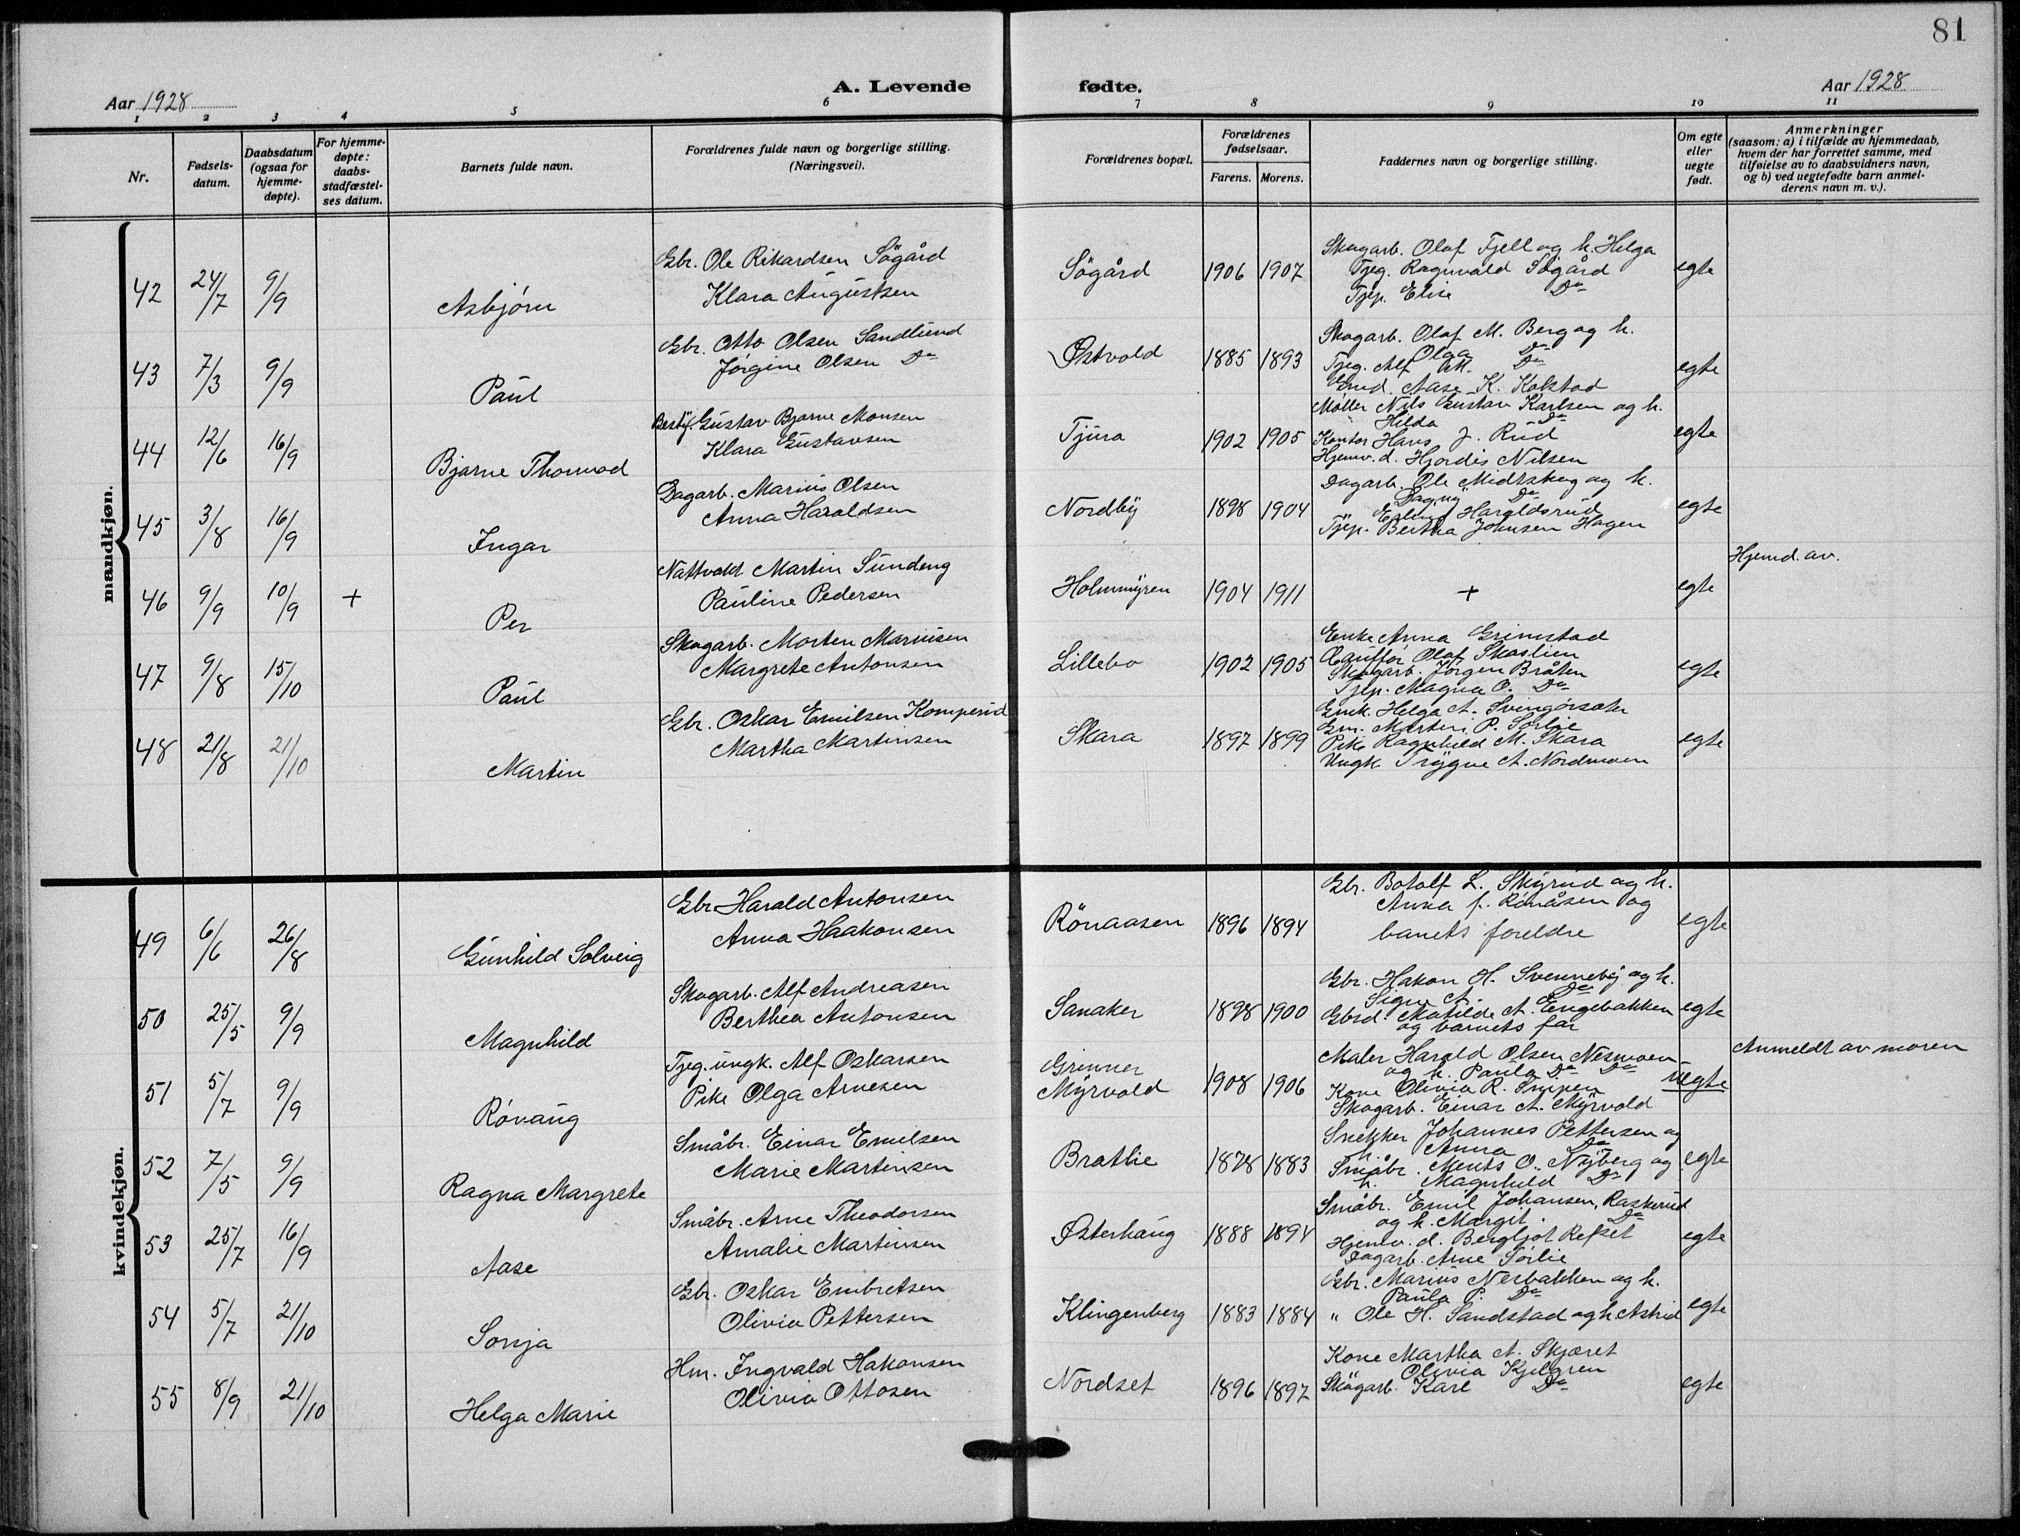 81
A. Levende fødte.
Aar 1928
Aar 1928
1 2 3 4 5 6 7 8 9 10 11
Nr.
Fødsels-
datum.
Daabsdatum
(ogsaa for
hjemme-
døpte).
For hjemme-
døpte:
daabs-
stadfæstel-
ses datum.
Barnets fulde navn.
Forældrenes fulde navn og borgerlige stilling.
(Næringsvei).
Forældrenes bopæl.
Forældrenes
fødselsaar.
Farens. Morens.
Faddernes navn og borgerlige stilling.
Om egte
eller
uegte
født.
Anmerkninger
(saasom: a) i tilfælde av hjemmedaab,
hvem der har forrettet samme, med
tilføielse av to daabsvidners navn,
og b) ved uegtefødte barn anmel-
derens navn m. v.).
mandkjøn.
42 24/7 9/9 Asbjörn
Gbr. Ole Rikardsen Sögård
Klara Augustsen
Sögård 1906 1907
Skogarb. Olaf Fjell og h. Helga
Tjeg. Ragnvald Sögård
Tjep. Elise Do
egte
43 7/3 9/9 Paul
Gbr. Otto Olsen Sandlund
Jörgine Olsen Do
Østvold 1885 1893
Skogarb. Olaf M. Berg og h.
Olga Do
Tjeg. Alf M. Do
Gmd. Aase K. Kolstad
egte
44 12/6 16/9 Bjarne Thormod
Besty. Gustav Bjarne Monsen
Klara Gustavsen
Tjura 1902 1905
Møller Nils Gustav Karlsen og h.
Hilda Do
Kontor Hans J. Rud
Hjemv. d. Hjordis Nilsen
egte
45 3/8 16/9 Ingar
Dagarb. Marius Olsen
Anna Haraldsen
Nordby 1898 1904
Dagarb. Ole Midtskog og h.
Dagny Do
Erling Haraldsrud
Tjep. Bertha Johnsen Hagen
egte
46 9/9 10/9 + Per
Nattvakt Martin Sundeng
Pauline Pedersen
Holmmyren 1904 1911
+
egte
Hjemd. av.
47 9/8 15/10 Paul
Skogarb. Morten Mariusen
Margrete Antonsen
Lillebo 1902 1905
Enke Anna Grimstad
Chauffør Olaf Skaslien
Skogarb. Jörgen Bråten
Tjep. Magna O. Do
egte
48 21/8 21/10 Martin
Gbr. Oskar Emilsen Komperud
Martha Martinsen
Skara 1897 1899
Gmk. Helga A. Svingörsæter
Gm. Martin P. Sörlie
Pike Ragnhild M. Skara
Ungk. Trygve A. Nordmoen
egte
kvindekjøn.
49 6/6 26/8 Gunhild Solveig
Gbr Harald Antonsen
Anna Haakonsen
Rönaasen 1896 1894
Gbr. Botolf L. Skyrud og h.
Anna f. Rönåsen og
barnets foreldre
egte
50 25/5 9/9 Magnhild
Skogarb. Alf Andreasen
Berthea Antonsen
Sanaker 1898 1900
Gbr. Hakon H. Svenneby og h.
Signe A. Do
Gbrd. Matilde A. Engebakken
og barnets far
egte
51 5/7 9/9 Røvaug
Tjeg. ungk. Alf Oskarsen
Pike Olga Arnesen
Grinner
Myrvold 1908 1906
Maler Harald Olsen Nesmoen
og h. Paula Do Do
Kone Olivia R. Snipen
Skogarb. Einar A. Myrvold
uegte
Anmeldt av moren
52 7/5 9/9 Ragna Margrete
Småbr. Einar Emilsen
Marie Martinsen
Bratlie 1878 1883
Snekker Johannes Pettersen og
h. Anna Do
Småbr. Ments O. Nyberg og
h. Magnhild Do
egte
53 25/7 16/9 Aase
Småbr. Arne Theodorsen
Amalie Martinsen
Østerhaug 1888 1894
Småbr. Emil Johansen Raskerud
og h. Margit. Do
Hjemv. d. Bergljot Refset
Dagarb. Arne Sörlie
egte
54 5/7 21/10 Sonja
Gbr. Oskar Embretsen
Olivia Pettersen
Klingenberg 1883 1884
Gbr. Marius Nesbakken og h.
Paula P. Do
„ Ole H. Sandstad og h. Astrid
egte
55 8/9 21/10 Helga Marie
Hm. Ingvald Hakonsen
Olivia Ottosen
Nordset 1896 1897
Kone Martha A. Skjæret
Olivia Kjelgren
Skogarb. Karl Do
egte